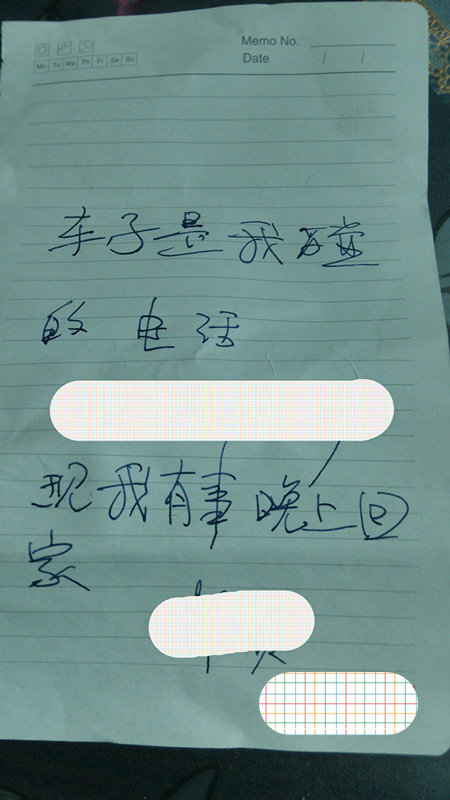 Memo No.
Date / /
Mo Tu We Th Fr Sa Su
车子是我碰
的 电话
现我有事晚上回
家